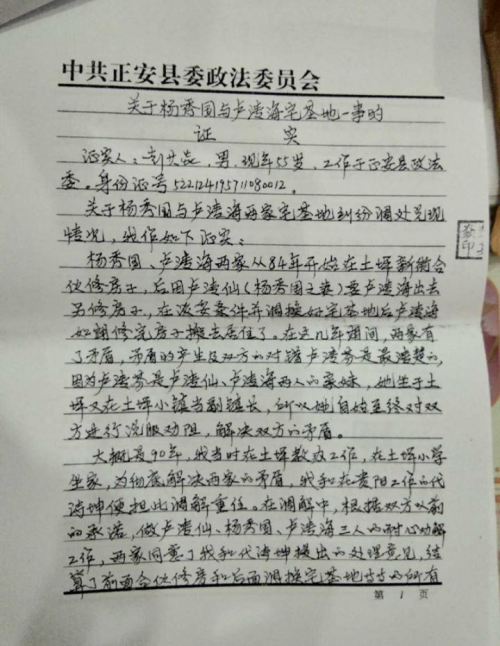 中共正安县委政法委员会
关于杨秀国与卢涛海宅基地一事的
证 实
证实人：彭 男，现年55岁，工作于正安县政法
委。身份证号522124195711080012。
关于杨秀国与卢涛海两家宅基地纠纷调处兑现
情况，我作如下证实：
杨秀国、卢涛海两家从84年开始在土坪新街合
伙修房子，后因卢涛仙（杨秀国之妻）要卢涛海出去
另修房子，在谈妥条件并调换好宅基地后卢涛海
如期修完房子搬去居住了。在这几年期间，两家有
了矛盾，矛盾的产生及双方的对错卢涛芬是最清楚的，
因为卢涛芬是卢涛仙、卢涛海两人的亲妹，她生于土
坪又在土坪小镇当副镇长，所以她自始至终对双
方进行说服劝阻，解决双方的矛盾。
大概是90年，我当时在土坪教办工作，在土坪小学
坐家，为彻底解决两家的矛盾，我和在贵阳工作的代
涛坤便担此调解重任。在调解中，根据双方以前
的承诺，做卢涛仙、杨秀国、卢涛海三人的耐心劝解
工作，两家同意了我和代涛坤提出的处理意见，结
算了前面合伙修房和后面调换宅基地等等的所有
第 1 页